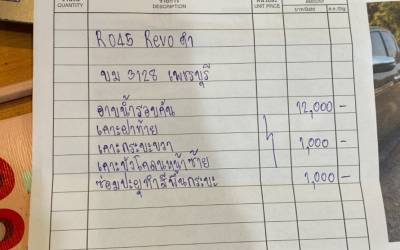 QUANTITY DESCRIPTION UNIT PRICE AMOUNT
R045 Revo ดำ
บม 3128 เพชรบุรี
อาบน้ำรอบคัน 12,000 –
เคาะฝาท้าย
เคาะกระบะขวา 1,000 –
เคาะบัวโคลนหน้าซ้าย
ซ่อมปะผุทำสีพื้นกระบะ 1,000 –